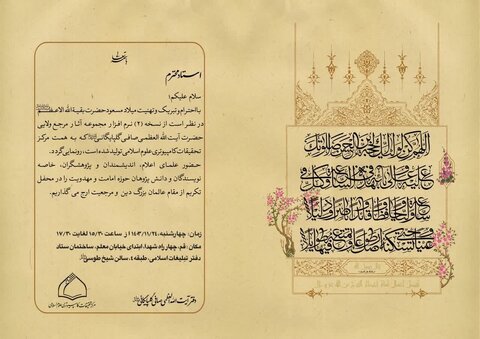 باسمه تعالی
استاد محترم
سلام علیکم؛
با احترام و تبریک و تهنیت میلاد مسعود حضرت بقیة الله الاعظم
در نظر است از نسخه (۲) نرم افزار مجموعه آثار مرجع ولایی
حضرت آیت الله العظمی صافی گلپایگانی که به همت مرکز
تحقیقات کامپیوتری علوم اسلامی تولید شده است، رونمایی گردد.
حضور علمای اعلام، اندیشمندان و پژوهشگران، خاصه
نویسندگان و دانش پژوهان حوزه امامت و مهدویت را در محفل
تکریم از مقام عالمان بزرگ دین و مرجعیت ارج می‌گذاریم.
زمان: چهارشنبه، ۱۴۰۳/۱۱/۲۴ از ساعت ۱۵/۳۰ لغایت ۱۷/۳۰
مکان: قم، چهار راه شهدا، ابتدای خیابان معلم، ساختمان ستاد
دفتر تبلیغات اسلامی، طبقه ۴، سالن شیخ طوسی
دفتر آیت الله العظمی صافی گلپایگانی
اللهم کن لولیک الحجة بن الحسن صلواتک
علیه وعلی آبائه فی هذه الساعة وفی کل
ساعة ولیا وحافظا وقائدا وناصرا ودلیلا
وعینا حتی تسکنه ارضک طوعا وتمتعه فیها طویلا